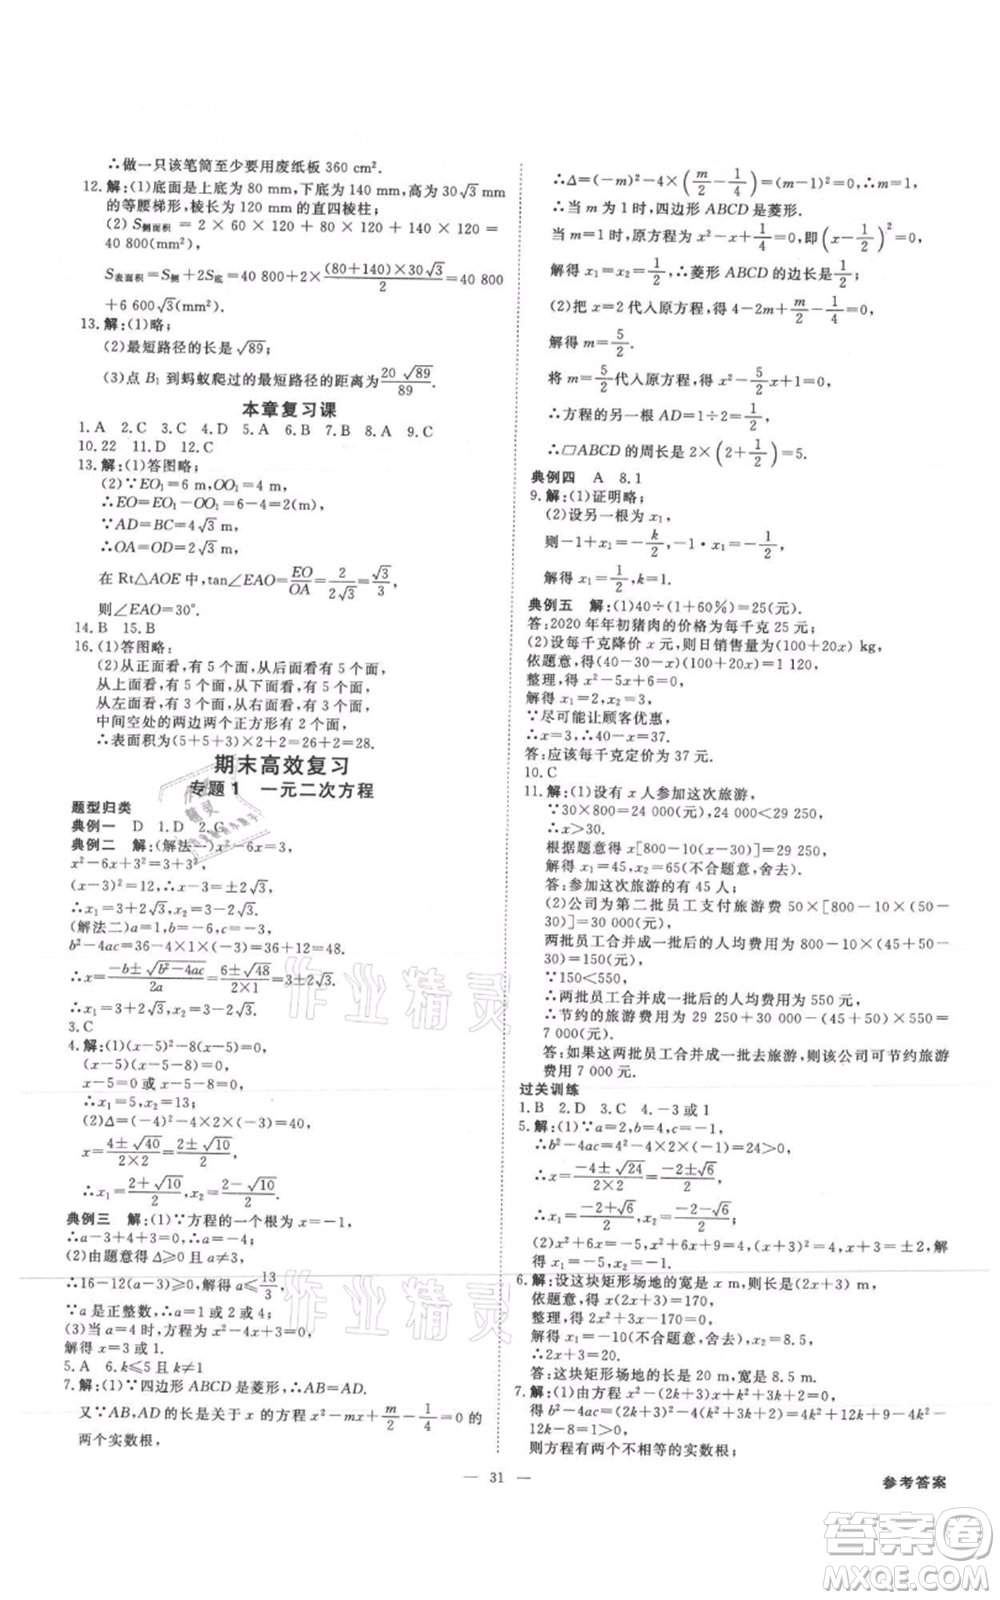 ∴做一只该笔筒至少要用废纸板 360 cm².
12. 解:(1)底面是上底为 80 mm,下底为 140 mm,高为 30√3 mm
的等腰梯形,棱长为 120 mm 的直四棱柱;
(2) S侧面积 = 2 × 60 × 120 + 80 × 120 + 140 × 120 =
40 800(mm²)
S表面积=S侧+2S底=40 800+2×(80+140)×30√3/2=40 800
+6 600√3(mm²).
13. 解:(1)略;
(2)最短路径的长是√89;
(3)点 B₁ 到蚂蚁爬过的最短路径的距离为20√89/89.
本章复习课
1. A 2. C 3. C 4. D 5. A 6. B 7. B 8. A 9. C
10. 22 11. D 12. C
13. 解:(1)答图略;
(2)∵EO₁=6 m,OO₁=4 m,
∴EO=EO₁-OO₁=6-4=2(m)
∵AD=BC=4√3 m,
∴OA=OD=2√3 m,
在 Rt△AOE 中,tan∠EAO=EO/OA=2/2√3=√3/3,
则∠EAO=30°.
14. B 15. B
16. (1)答图略;
(2)从正面看,有 5 个面,从后面看有 5 个面,
从上面看,有 5 个面,从下面看,有 5 个面,
从左面看,有 3 个面,从右面看,有 3 个面,
中间空处的两边两个正方形有 2 个面,
∴表面积为(5+5+3)×2+2=26+2=28.
期末高效复习
专题 1 一元二次方程
题型归类
典例一 D 1. D 2. C
典例二 解:(解法一)x²-6x=3,
x²-6x+3²=3+3²,
(x-3)²=12,∴x-3=±2√3,
∴x₁=3+2√3,x₂=3-2√3.
(解法二)a=1,b=-6,c=-3,
b²-4ac=36-4×1×(-3)=36+12=48.
∴x=-b±√b²-4ac/2a=6±√48/2×1=3±2√3,
∴x₁=3+2√3,x₂=3-2√3.
3. C
4. 解:(1)(x-5)²-8(x-5)=0,
(x-5)(x-5-8)=0,
x-5=0 或 x-5-8=0,
∴x₁=5,x₂=13;
(2)Δ=(-4)²-4×2×(-3)=40,
x=4±√40/2×2=2±√10/2,
∴x₁=2+√10/2,x₂=2-√10/2.
典例三 解:(1)∵方程的一个根为 x=-1,
∴a-3+4+3=0,∴a=-4;
(2)由题意得 Δ≥0 且 a-3≠0,
∴16-12(a-3)≥0,解得 a≤13/3,
∵a 是正整数,∴a=1 或 2 或 4;
(3)当 a=4 时,方程为 x²-4x+3=0,
解得 x=3 或 1.
5. A 6. k≤5 且 k≠1
7. 解:(1)∵四边形 ABCD 是菱形,∴AB=AD.
又∵AB,AD 的长是关于 x 的方程 x²-mx+m/2-1/4=0 的
两个实数根,
∴Δ=(-m)²-4×(m/2-1/4)=(m-1)²=0,∴m=1,
∴当 m 为 1 时,四边形 ABCD 是菱形.
当 m=1 时,原方程为 x²-x+1/4=0,即(x-1/2)²=0,
解得 x₁=x₂=1/2,∴菱形 ABCD 的边长是1/2.
(2)把 x=2 代入原方程,得 4-2m+m/2-1/4=0,
解得 m=5/2.
将 m=5/2代入原方程,得 x²-5/2x+1=0,
∴方程的另一根 AD=1÷2=1/2,
∴□ABCD 的周长是 2×(2+1/2)=5.
典例四 A 8. 1
9. 解:(1)证明略;
(2)设另一根为 x₁,
则-1+x₁=-k/2,-1·x₁=-1/2,
解得 x₁=1/2,k=1.
典例五 解:(1)40÷(1+60%)=25(元).
答:2020 年年初猪肉的价格为每千克 25 元;
(2)设每千克降价 x 元,则日销售量为(100+20x) kg,
依题意,得(40-30-x)(100+20x)=1 120,
整理,得 x²-5x+6=0,
解得 x₁=2,x₂=3.
∵尽可能让顾客优惠,
∴x=3,∴40-x=37.
答:应该每千克定价为 37 元.
10. C
11. 解:(1)设有 x 人参加这次旅游,
∵30×800=24 000(元),24 000<29 250,
∴x>30.
根据题意,得 x[800-10(x-30)]=29 250,
解得 x₁=45,x₂=65(不合题意,舍去).
答:参加这次旅游的有 45 人;
(2)公司为第二批员工支付旅游费 50×[800-10×(50-
30)]=30 000(元),
两批员工合并成一批后的人均费用为 800-10×(45+50-
30)=150(元),
∵150<550,
∴两批员工合并成一批后的人均费用为 550 元,
∴节约的旅游费用为 29 250+30 000-550×(45+50)=
7 000(元).
答:如果这两批员工合并去旅游,则该公司可节约旅游
费用 7 000 元.
过关训练
1. B 2. D 3. C 4. -3 或 1
5. 解:(1)∵a=2,b=4,c=-1,
∴b²-4ac=4²-4×2×(-1)=24>0,
∴x=-4±√24/2×2=-2±√6/2,
∴x₁=-2+√6/2,x₂=-2-√6/2.
(2)x²+6x+9=-2x²-4x+9=7,(x+3)²=7,x+3=±√7,解
6. 解:设这块矩形场地的宽是 x m,则长是(2x+3) m,
依题意,得 x(2x+3)=170,
整理,得 2x²+3x-170=0,
解得 x₁=-10(不合题意,舍去),x₂=8.5,
∴2x+3=20.
答:这块矩形场地的长是 20 m,宽是 8.5 m.
7. 解:(1)由方程 x²-(2k+3)x+k²+3k+2=0,
得 b²-4ac=(2k+3)²-4(k²+3k+2)=4k²+12k+9-4k²
-12k-8=1>0,
则方程有两个不相等的实数根;
— 31 —
参考答案
作业精灵
作业精灵
答案圈
MXQE.COM